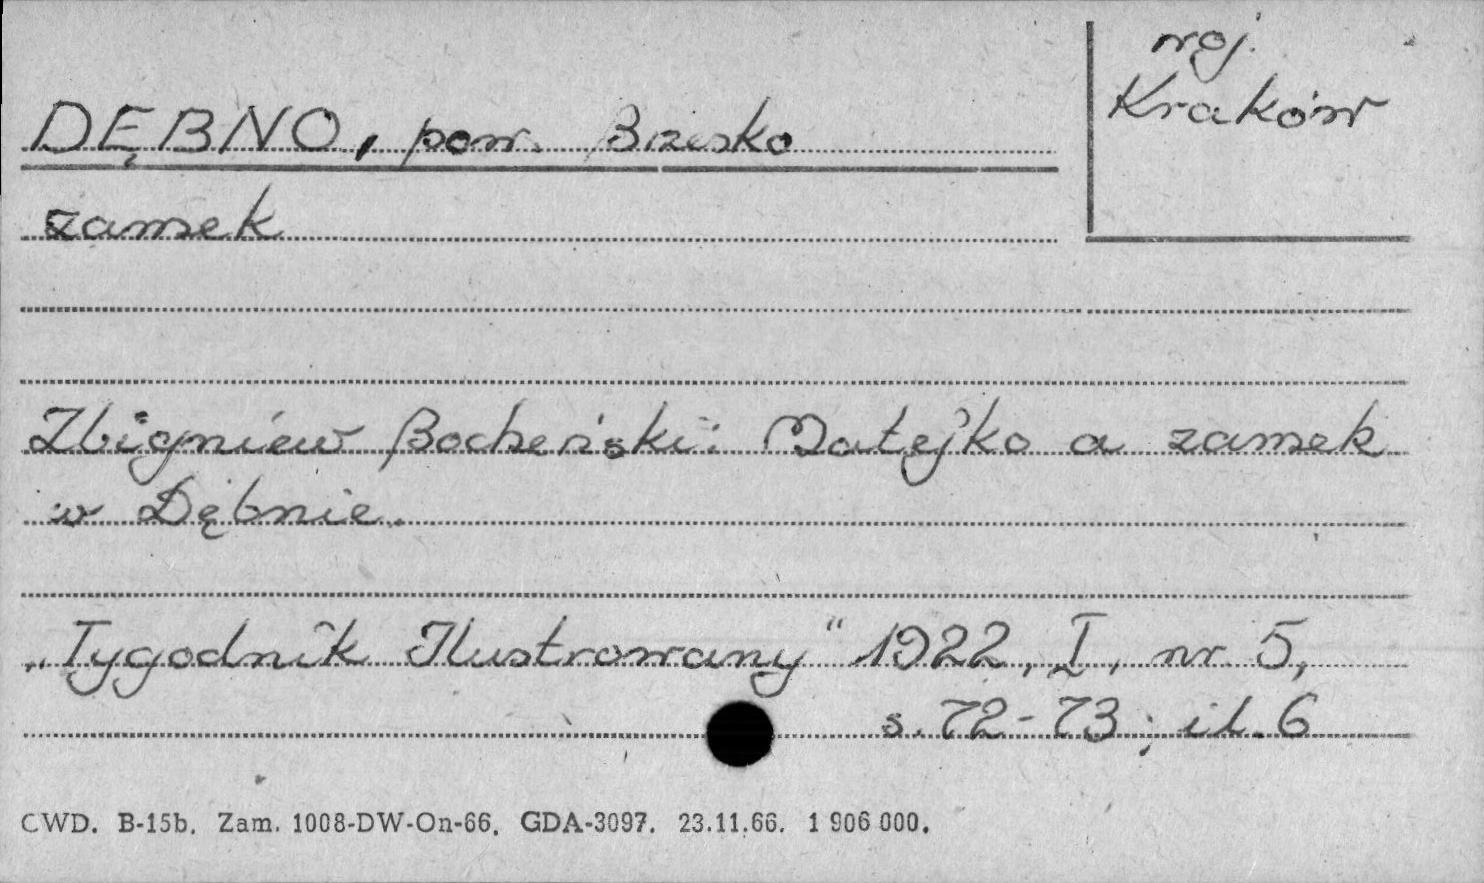 woj.
Kraków
DĘBNO, pow. Brzesko
zamek
Zbigniew Bocheński: Matejko a zamek
w Dębnie.
„Tygodnik Ilustrowany" 1922, I, nr 5,
s. 72-73; il. 6
CWD. B-15b. Zam. 1008-DW-On-66. GDA-3097. 23.11.66. 1 906 000.